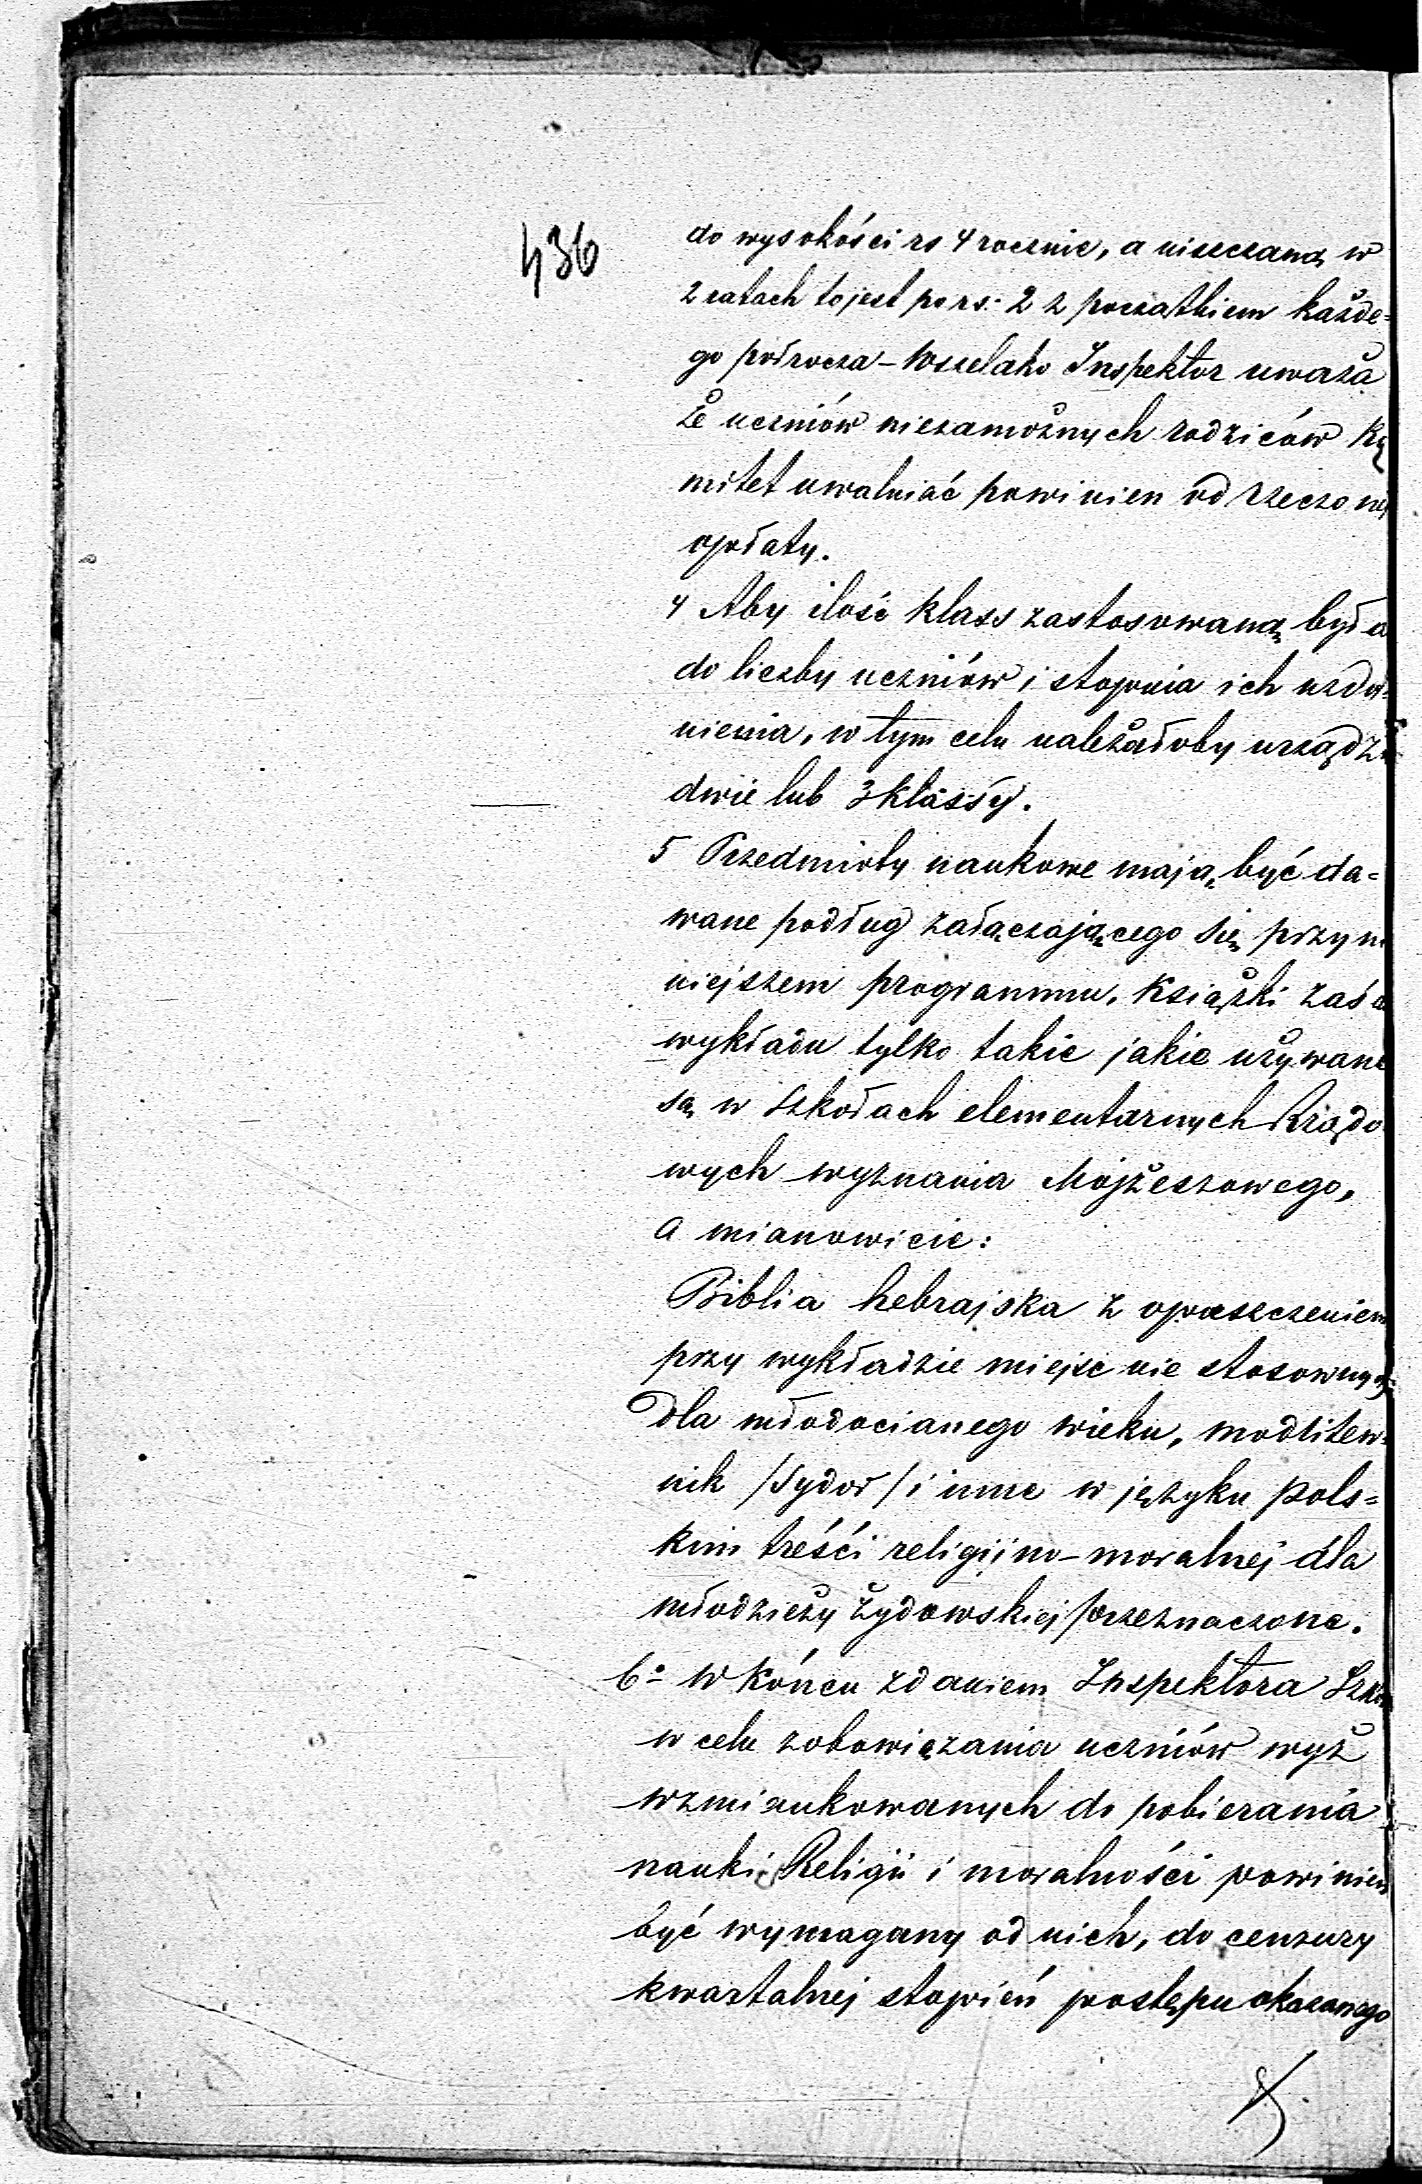 436
do wysokości rs 4 rocznie, a uiszczaną w
2 ratach to jest po rs. 2 z początkiem każde=
go półrocza – Wszelako Inspektor uważa
że uczniów niezamożnych rodziców Ko
mitet uwalniać powinien od rzeczonej
opłaty.
4 Aby ilość klass zastosowaną była
do liczby uczniów i stopnia ich uzdol=
nienia, w tym celu należałoby urządzić
dwie lub 3 klassy.
5 Przedmioty naukowe mają być da=
wane podług załączającego się przy ni
niejszem programmu. Książki zaś do
wykładu tylko takie jakie używane
są w szkołach elementarnych Rządo
wych wyznania Mojżeszowego,
a mianowicie:
Biblia hebrajska z opuszczeniem
przy wykładzie miejsc nie stosownych
dla młodocianego wieku, modlitew=
nik /Sydor/ i inne w języku pols=
kim treści religijno-moralnej dla
młodzieży żydowskiej przeznaczone.
6° W końcu zdaniem Inspektora Szkół
w celu zobowiązania uczniów wyż
wzmiankowanych do pobierania
nauki Religii i moralności powinien
być wymagany od nich, do cenzury
kwartalnej stopień postępu okazanego